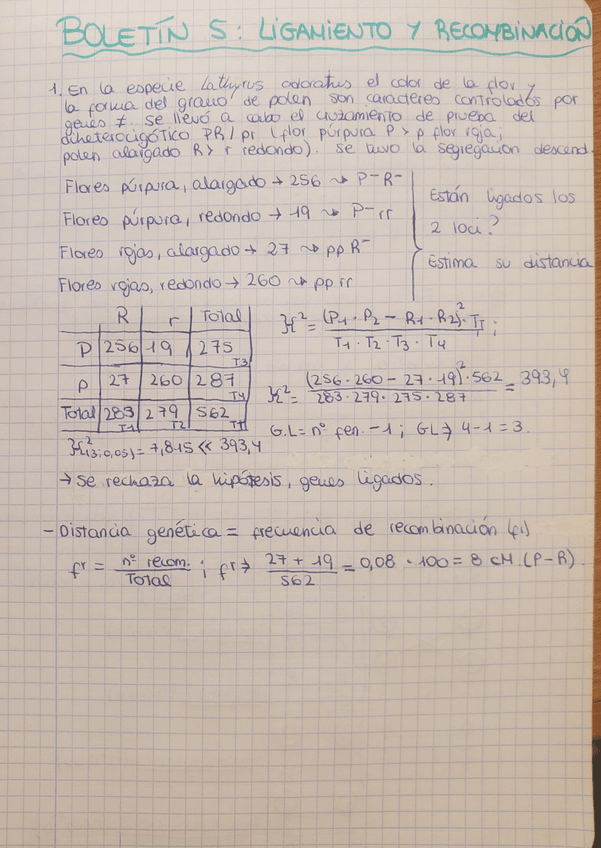 BOLETÍN 5: LIGAMIENTO Y RECOMBINACIÓN
1. En la especie Lathyrus odoratus el color de la flor y
la forma del grano de polen son caracteres controlados por
genes ≠. Se llevó a cabo el cruzamiento de prueba del
diheterocigótico PR/pr (flor púrpura P > p flor roja;
polen alargado R > r redondo). Se tuvo la segregación descend.
Flores púrpura, alargado → 256 ⇝ P-R-
Flores púrpura, redondo → 19 ⇝ P-rr
Flores rojas, alargado → 27 ⇝ ppR-
Flores rojas, redondo → 260 ⇝ pp rr
Están ligados los
2 loci?
Estima su distancia
R r Total
P 256 19 275 T3
p 27 260 287 T4
Total 283 T1 279 T2 562 TT
χ² = (P1 · P2 - R1 · R2)² · TT / T1 · T2 · T3 · T4 ;
χ² = (256 · 260 - 27 · 19)² · 562 / 283 · 279 · 275 · 287 = 393,4
G.L = nº fen. - 1 ; GL ⇒ 4 - 1 = 3.
χ²(3; 0,05) = 7,815 << 393,4
→ Se rechaza la hipótesis, genes ligados.
- Distancia genética = frecuencia de recombinación (fr)
fr = nº recom. / Total ; fr ⇒ 27 + 19 / 562 = 0,08 · 100 = 8 cM (P-R).